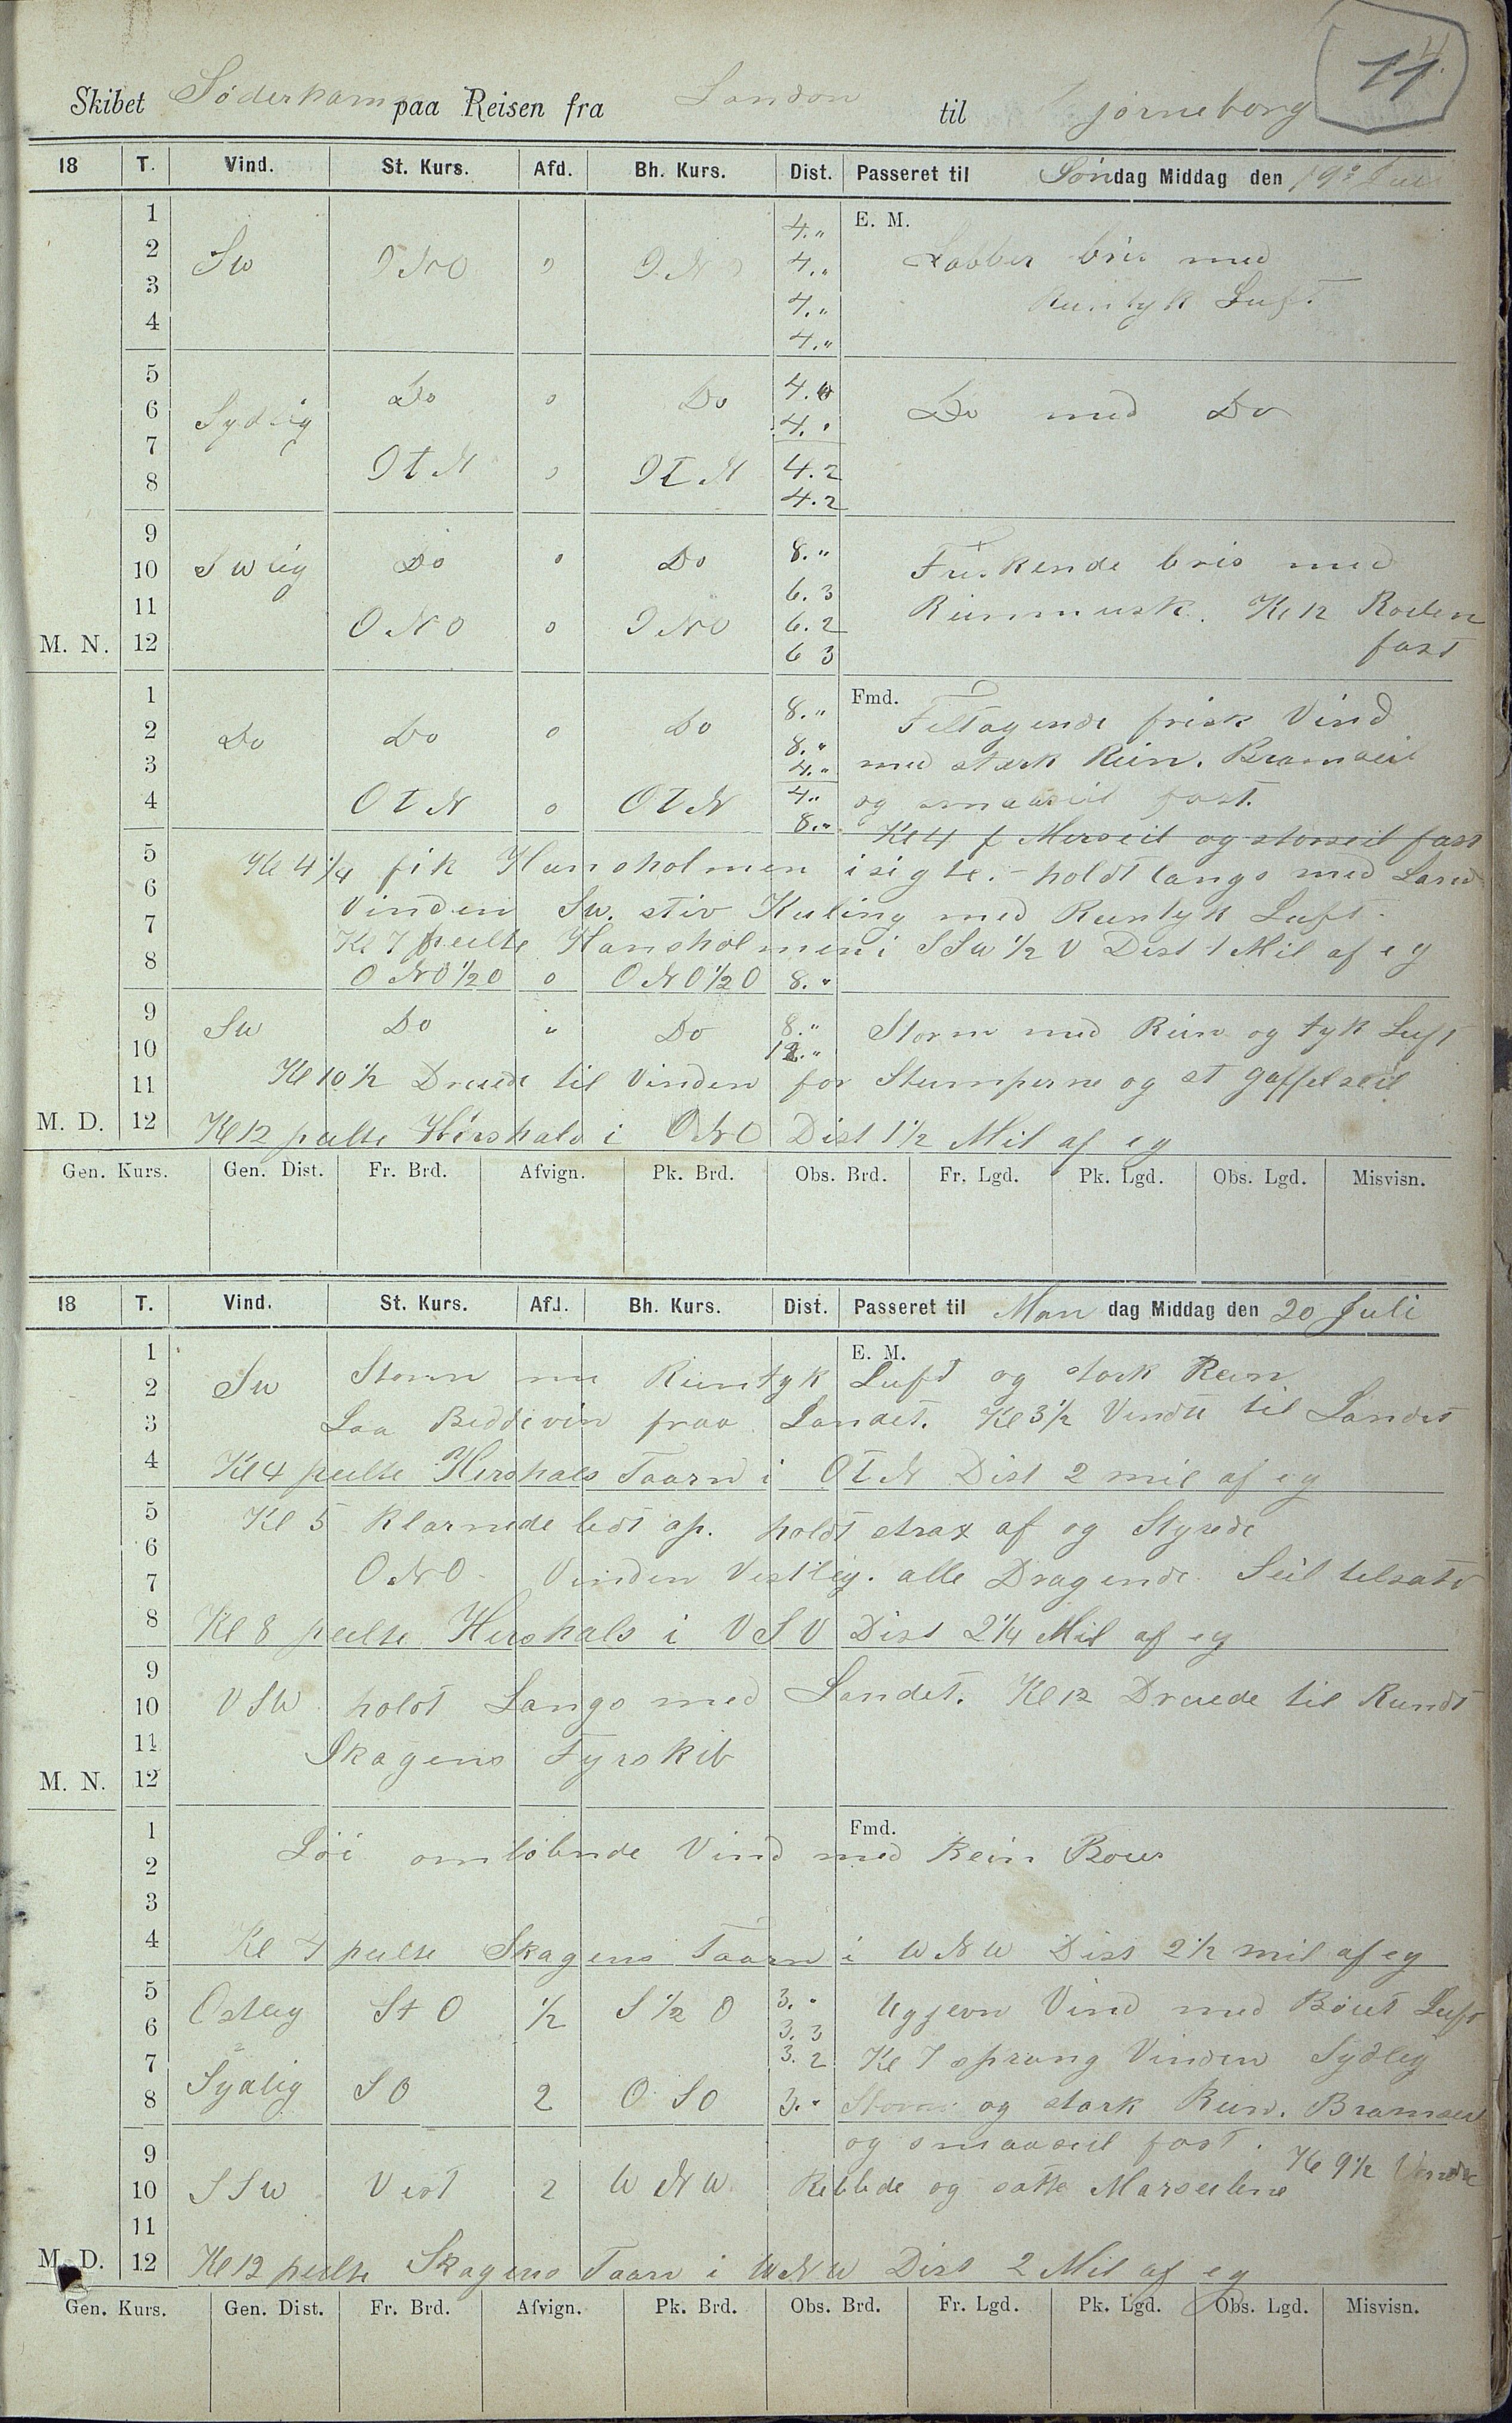 11
Skibet Söderhamn paa Reisen fra London til Bjørneborg
18 T. Vind. St. Kurs. Afd. Bh. Kurs. Dist. Passeret til Søndag Middag den 19de Juli
E. M.
1 4.„
2 Sw ONO „ ONO 4.„ Labber bris med
3 4.„ Reintyk Luft
4 4.„
5 Do „ Do 4.„
6 Sydlig 4.„ Do med Do
7 OtN „ OtN 4.2
8 4.2
9 8.„
10 Swlig Do „ Do 6.3 Friskende bris med
11 ONO „ ONO 6.2 Kl 12 Roilen
M. N. 12 6 3 fast
Fmd.
1 8.„ Tiltagende frisk Vind
2 Do Do „ Do 8.„
3 4.„ med stærk Rein. Bramseil
4 OtN „ OtN 4.„ og smaaseil fast.
8.„ Kl 4 f Merseil og storseil fast
5 Kl 4 1/4 fik Hansholmen isigte. - holdt langs med Land
6 Vinden Sw. stiv Kuling med Reintyk Luft.
7 Kl 7 peilte Hansholmen i SSw 1/2 V Dist 1 Mil af eg
8 ONO 1/2 O „ ONO 1/2 O 8.„
9 Sw Do „ Do 8.„ Storm med Rein og tyk Luft
10 12.„
11 Kl 10 1/2 Dreiede til Vinden for Stumperne og st gaffelseil
M. D. 12 Kl 12 peilte Hirshals i ONO Dist 1 1/2 Mil af eg
Gen. Kurs. Gen. Dist. Fr. Brd. Afvign. Pk. Brd. Obs. Brd. Fr. Lgd. Pk. Lgd. Obs. Lgd. Misvisn.
18 T. Vind. St. Kurs. Afd. Bh. Kurs. Dist. Passeret til Mandag Middag den 20 Juli
E. M.
1
2 Sw Storm me Reintyk Luft og stark Rein
3 Laa Biddevin fraa Landet. Kl 3 1/2 Vendte til Landet
4 Kl 4 peilte Hirshals Taarn i OtN Dist 2 mil af eg
5 Kl 5 Klarnede lidt op. holdt strax af og Styrede
6
7 ONO - Vinden Vestlig. alle Dragende Seil tilsatt
8 Kl 8 peilte Hirshals i VSV Dist 2 1/4 Mil af eg
9
10 VSW holdt Langs med Landet. Kl 12 Dreiede til Rundt
11 Skagens Fyrskib
M. N. 12
Fmd.
1
2 Löi omløbnde Vind med Rein Bour
3
4 Kl 4 peilte Skagens Taarn i WNW Dist 2 1/2 mil af eg
5 Ostlig StO 1/2 S 1/2 O 3.„ Ugjevn Vind med Böiet Luft
6 3.3
7 3.2 Kl 7 sprang Vinden Sydlig
8 Sydlig SO 2 OSO 3.„ Storm og stark Rein. Bramseil
9 og smaaseil fast. Kl 9 1/2 Vendte
10 SSw Vest 2 WNW Rebbede og satte Marseilene
11
M. D. 12 Kl 12 peilte Skagens Taarn i WNW Dist 2 Mil af eg
Gen. Kurs. Gen. Dist. Fr. Brd. Afvign. Pk. Brd. Obs. Brd. Fr. Lgd. Pk. Lgd. Obs. Lgd. Misvisn.